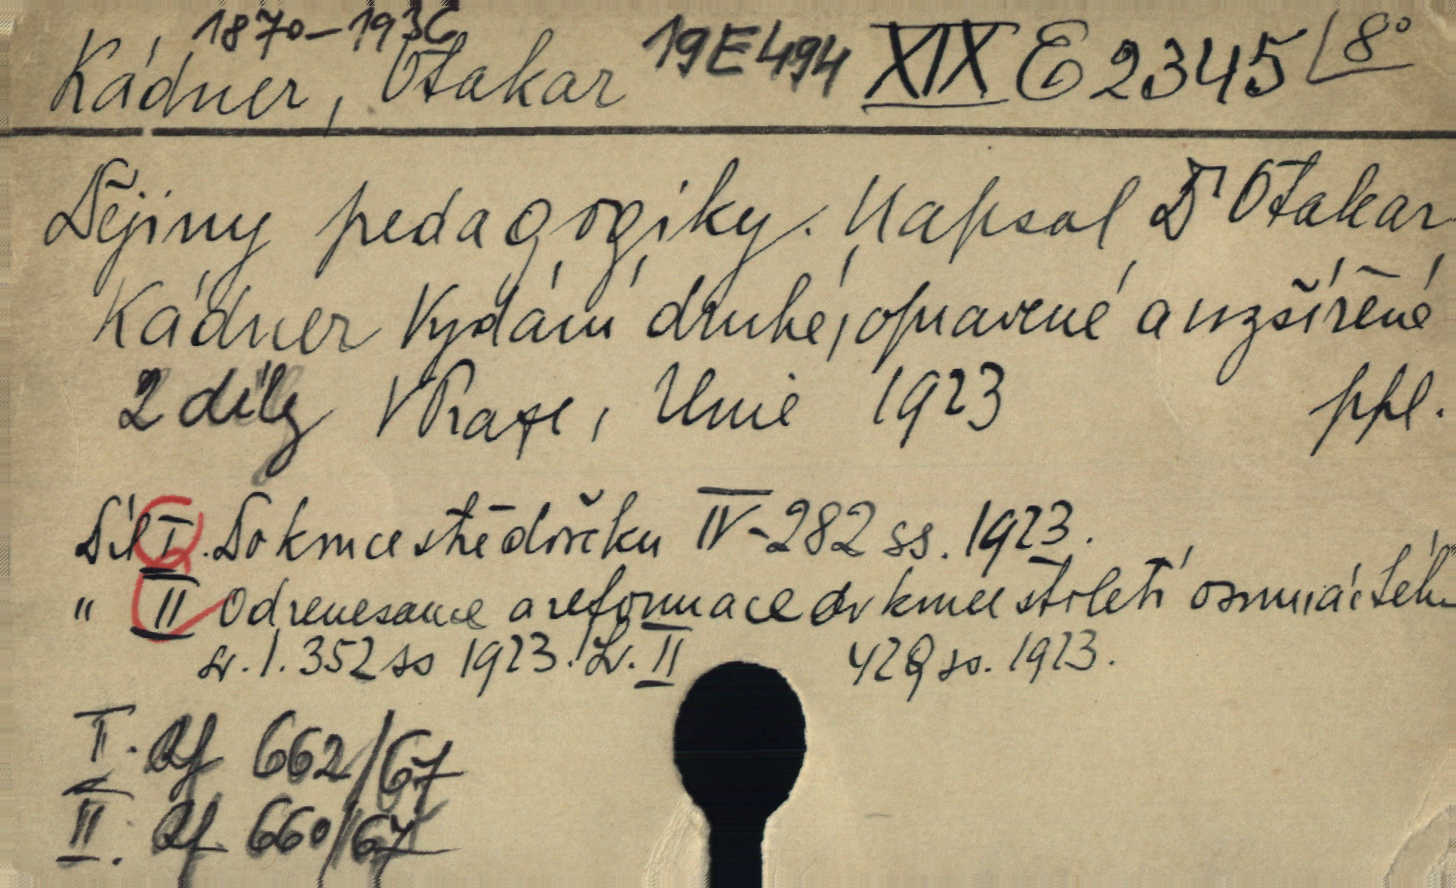 1870–1936
Kádner, Otakar 19E494 XIX E 2345 / 8°
Dějiny pedagogiky. Napsal Dr Otakar
Kádner Vydání druhé, opravené a rozšířené
2 díly V Praze, Unie 1923 ppl.
Díl I. Do konce středověku IV-282 ss. 1923.
" II Od renesance a reformace do konce století osmnáctého
sv. 1. 352 ss 1923. Sv. II 428 ss. 1923.
I. Df 662/67
II. Df 660/67